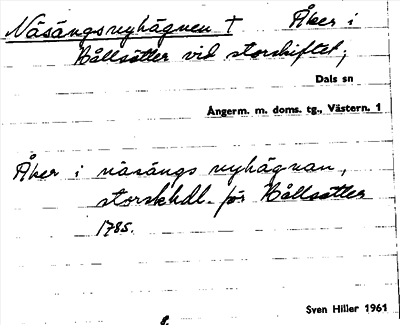 Näsängsnyhägnen † Åker i
Hållsätter vid storskiftet;
Dals sn
Ångerm. m. doms. tg., Västern. 1
Åker i näsängs nyhägnan,
storskhdl. för Hållsätter
1785.
Sven Hiller 1961